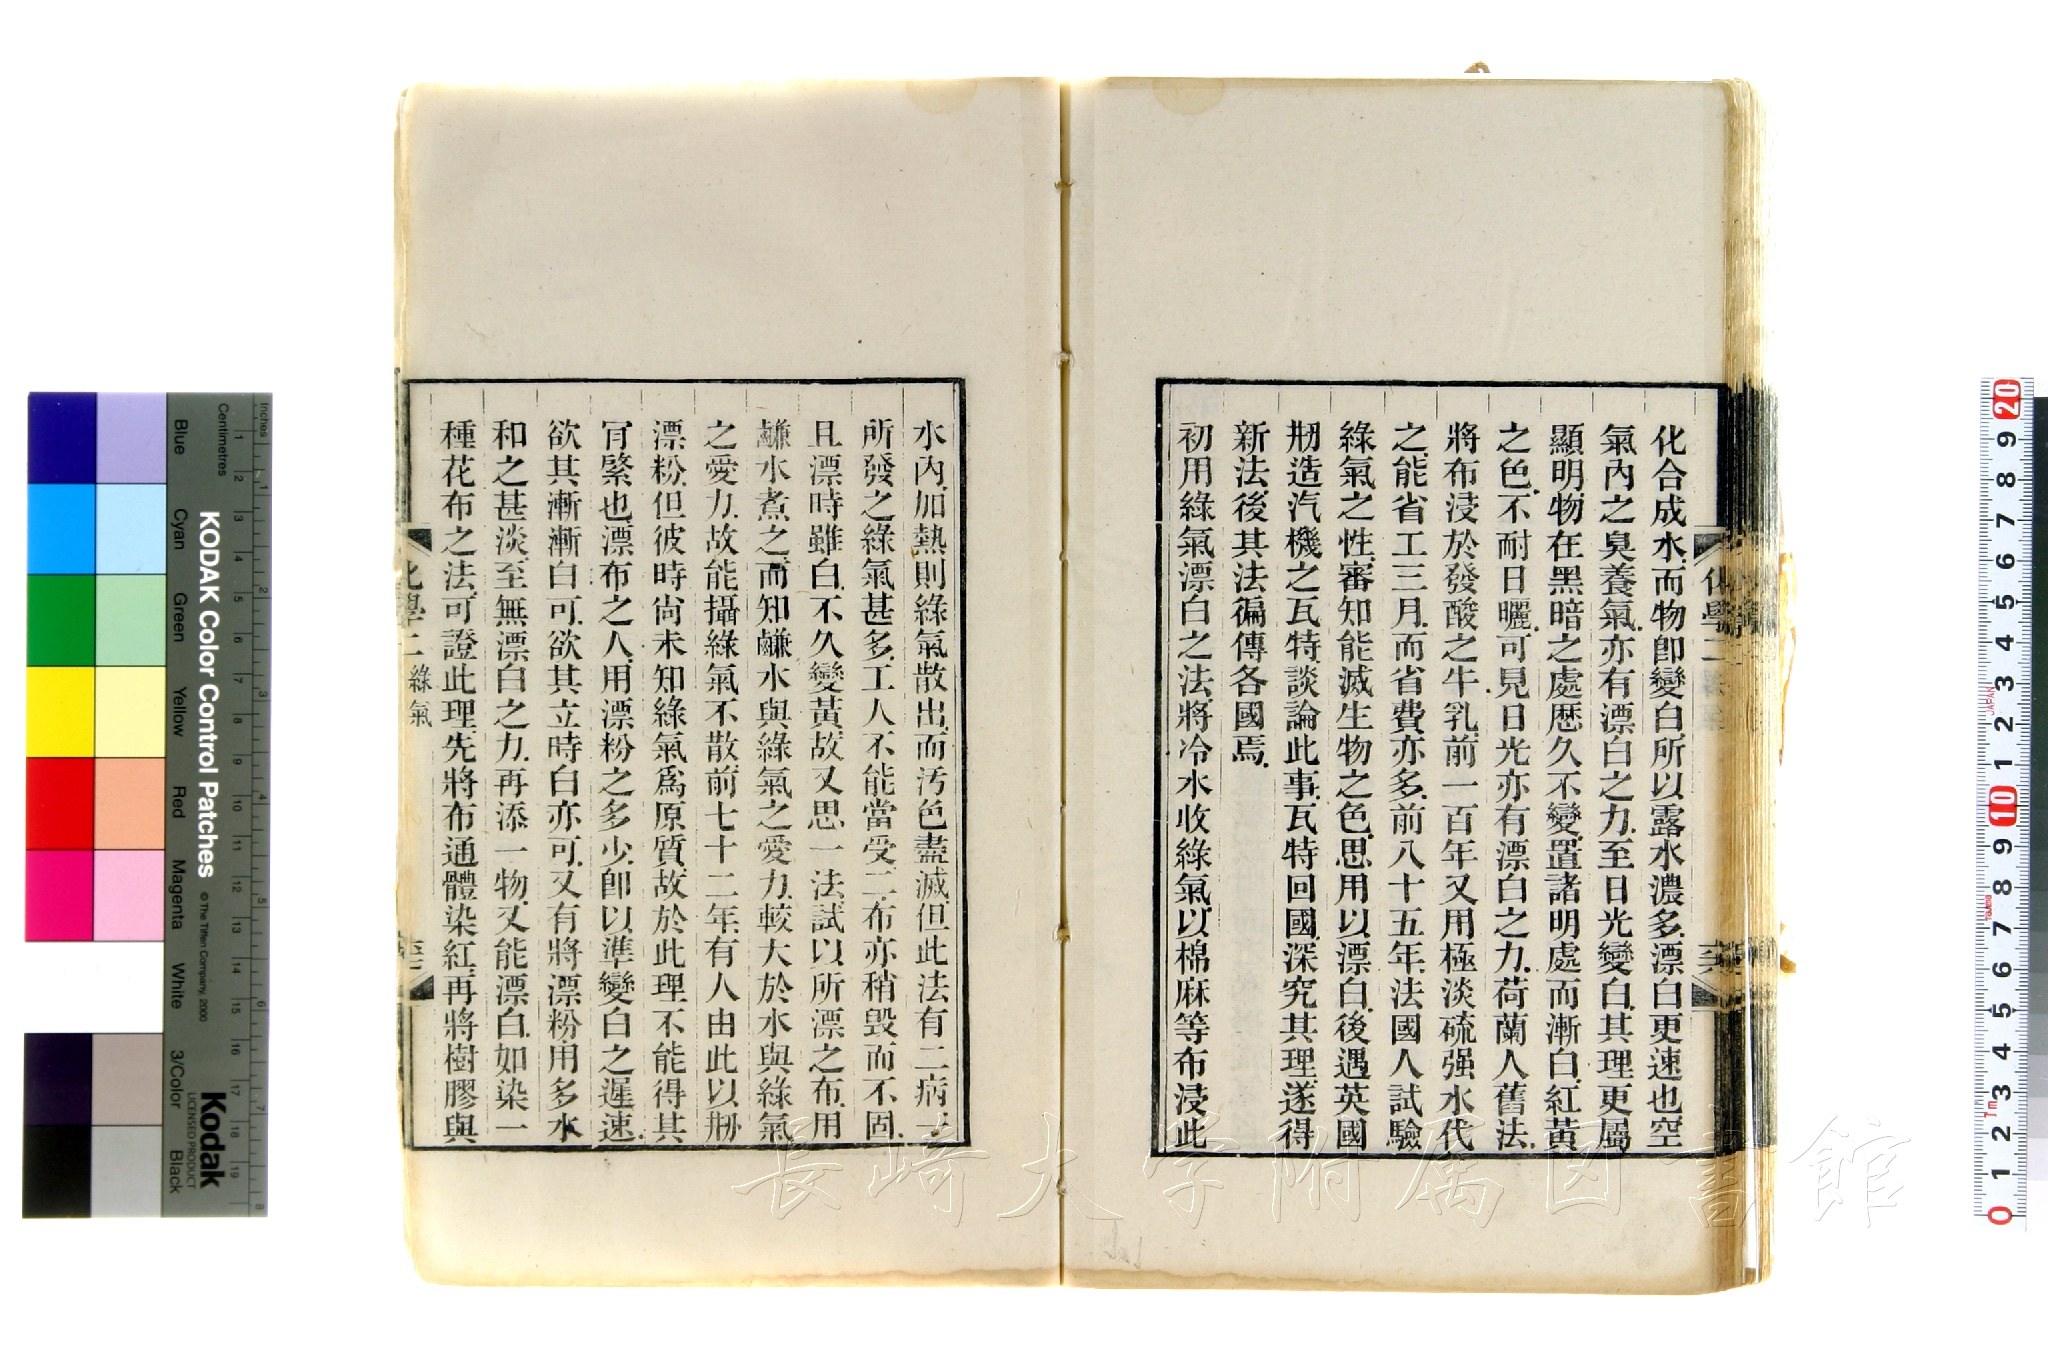 化合成水、而物卽變白、所以露水濃多、漂白更速也、空
氣內之臭養氣、亦有漂白之力、至日光變白、其理更屬
顯明、物在黑暗之處、歷久不變、置諸明處而漸白、紅黃
之色、不耐日曬、可見日光亦有漂白之力、荷蘭人舊法、
將布浸於發酸之牛乳、前一百年又用極淡硫强水代
之、能省工三月、而省費亦多、前八十五年、法國人試驗
綠氣之性、審知能滅生物之色、思用以漂白、後遇英國
剏造汽機之瓦特、談論此事、瓦特回國、深究其理、遂得
新法、後其法徧傳各國焉、
初用綠氣漂白之法、將冷水收綠氣、以棉麻等布浸此
化學二
水內、加熱則綠氣散出、而汚色盡滅、但此法有二病、一
所發之綠氣甚多、工人不能當受、二布亦稍毀而不固、
且漂時雖白、不久變黃、故又思一法、試以所漂之布、用
鹻水煮之、而知鹻水與綠氣之愛力、較大於水與綠氣
之愛力、故能攝綠氣不散、前七十二年、有人由此以剏
漂粉、但彼時尙未知綠氣爲原質、故於此理不能得其
肎綮也、漂布之人、用漂粉之多少、卽以準變白之遲速、
欲其漸漸白可、欲其立時白亦可、又有將漂粉用多水
和之甚淡、至無漂白之力、再添一物、又能漂白、如染一
種花布之法、可證此理、先將布通體染紅、再將樹膠與
化學二 綠氣
KODAK Color Control Patches
© The Tiffen Company, 2000
Kodak
LICENSED PRODUCT
Inches
Centimetres
Blue
Cyan
Green
Yellow
Red
Magenta
White
3/Color
Black
長崎大学附属図書館